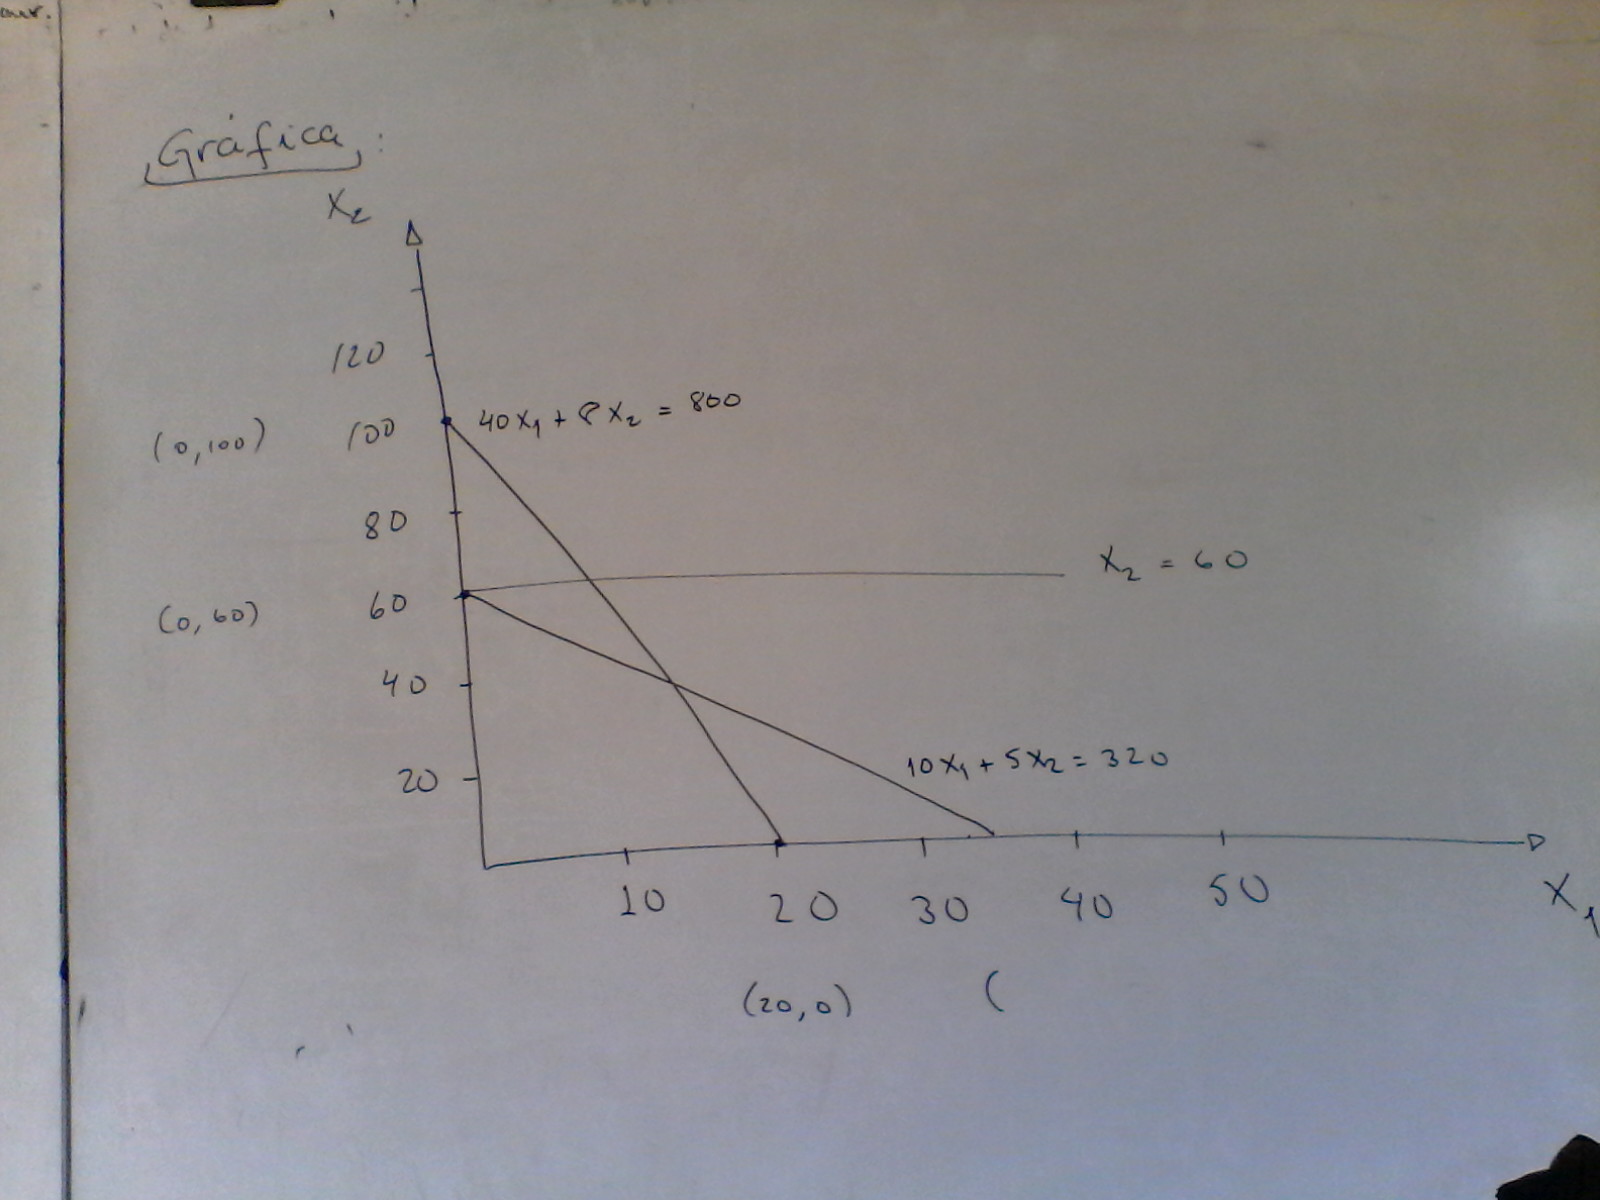 Gráfica:
X2
120
(0,100) 100 40X1 + 8X2 = 800
80
X2 = 60
(0,60) 60
40
10X1 + 5X2 = 320
20
10 20 30 40 50 X1
(20,0) (